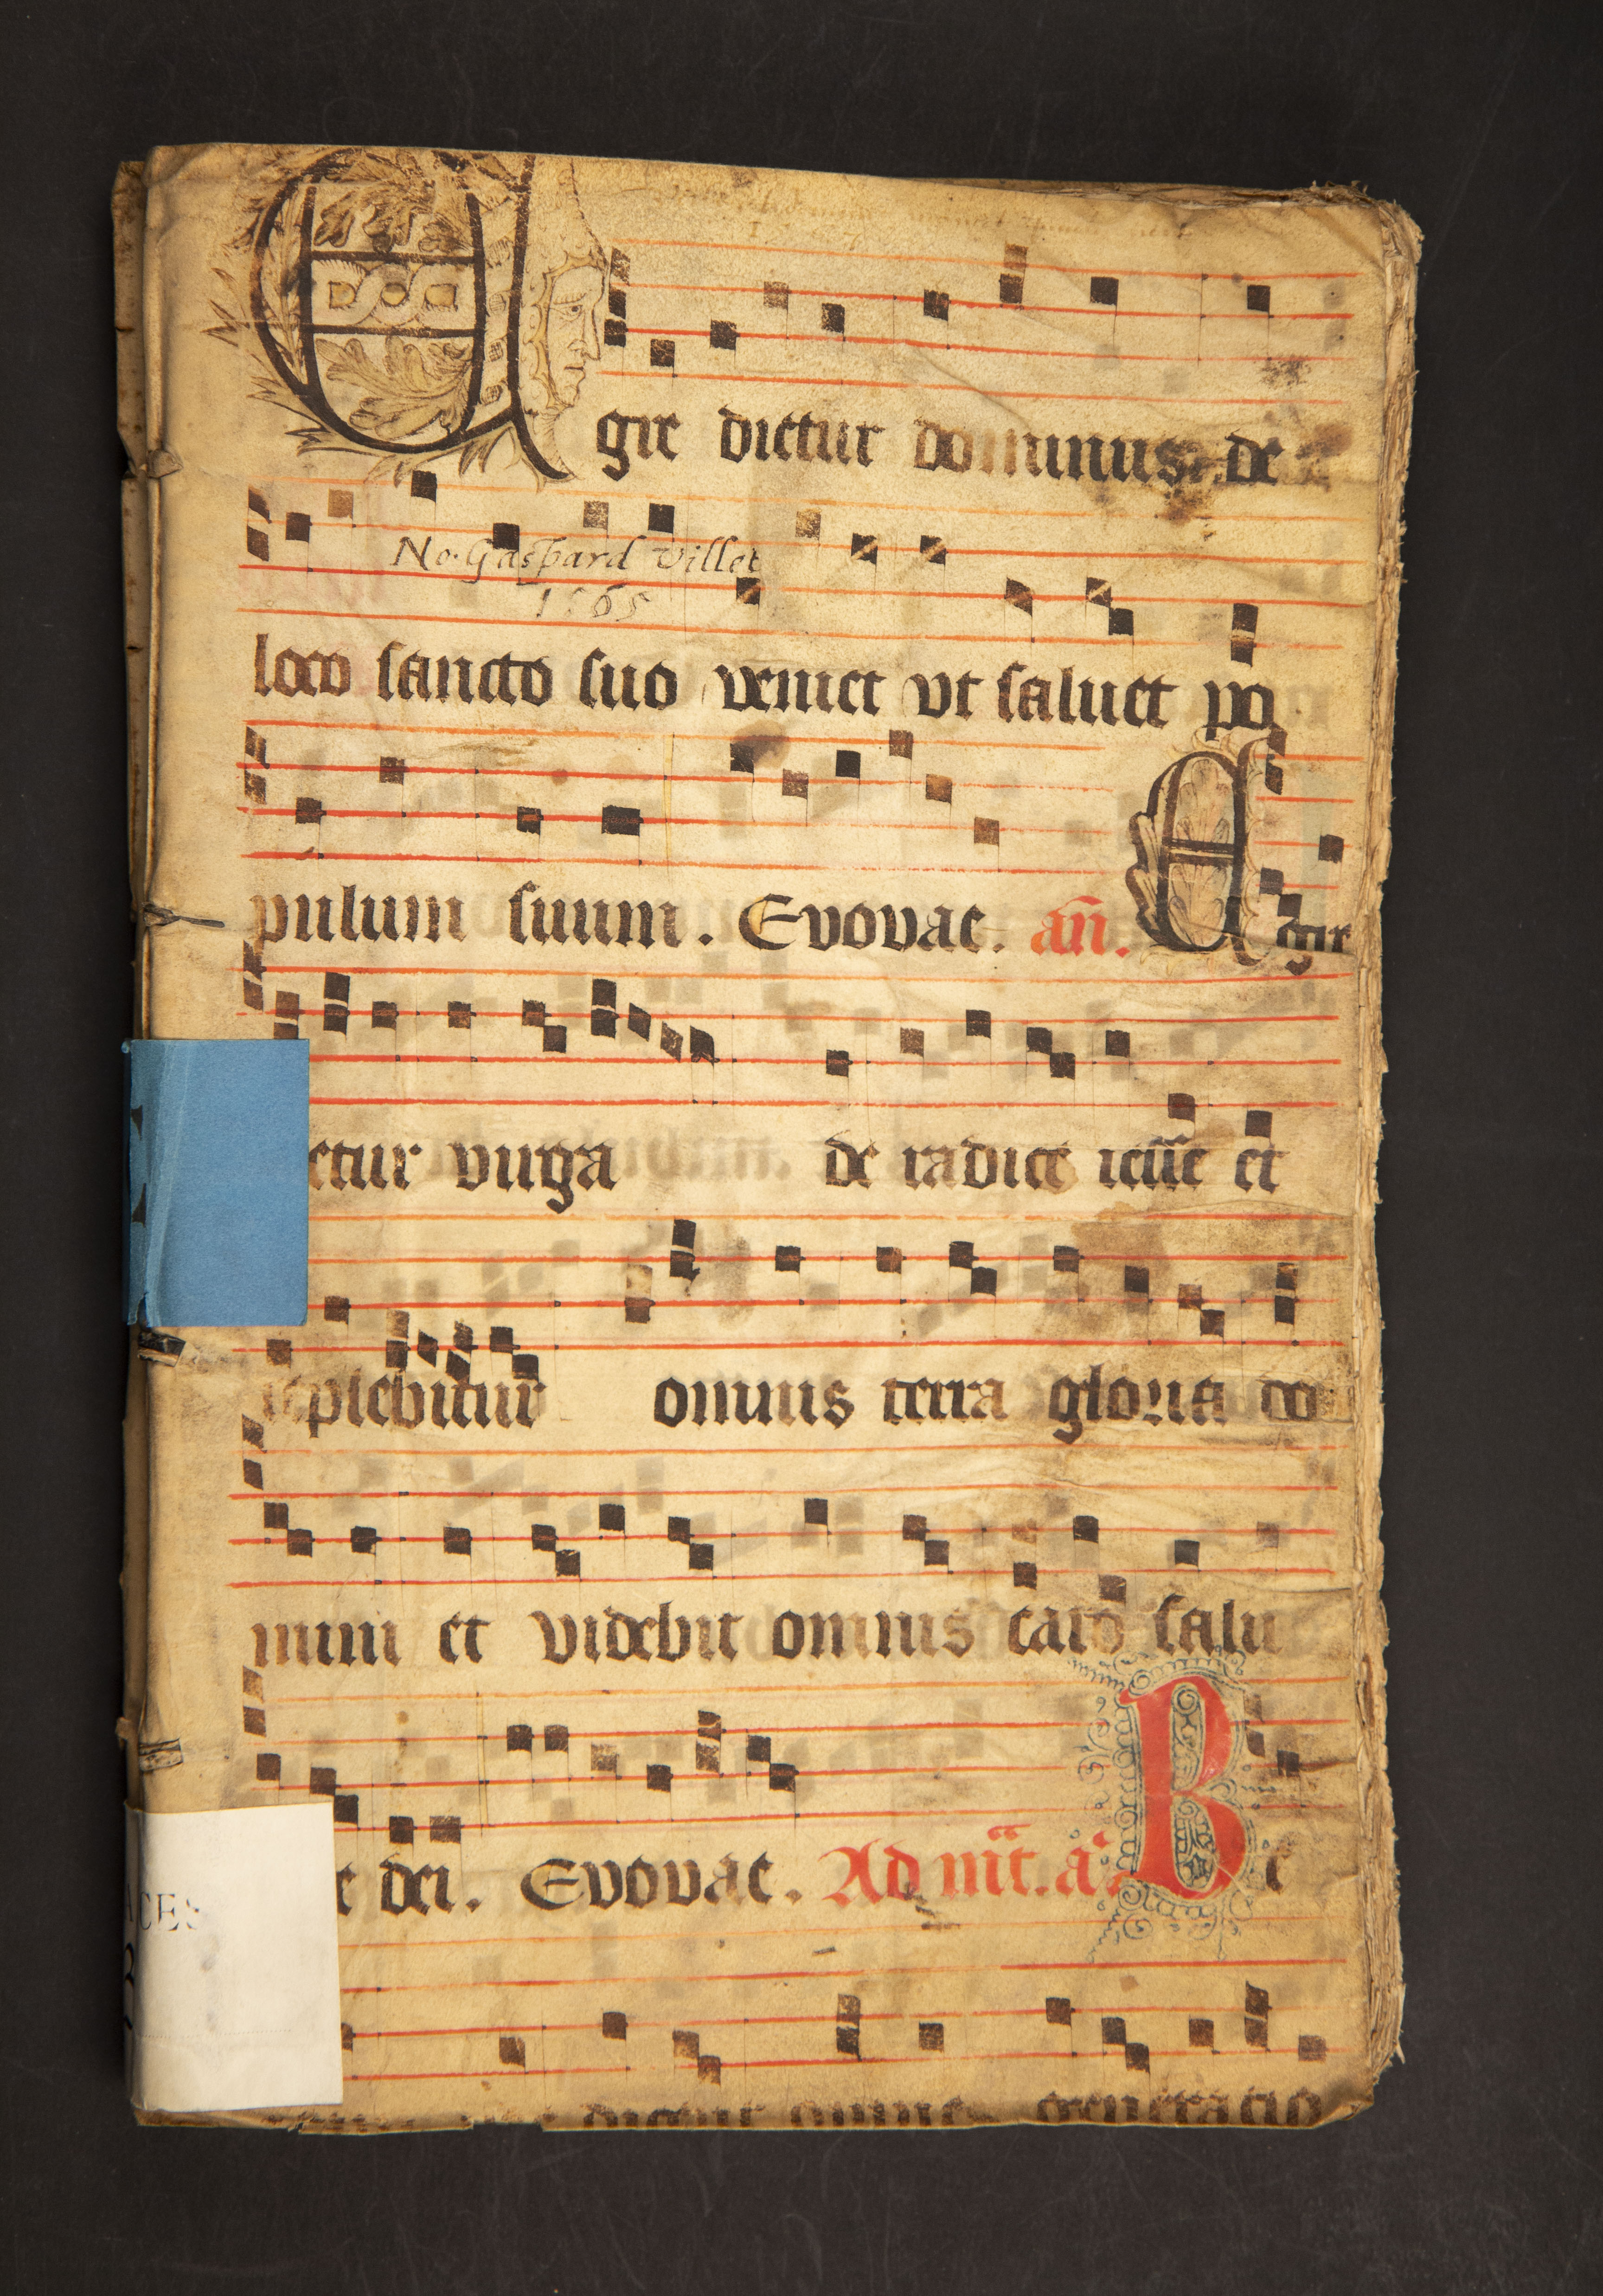 Egredietur dominus de
No. Gaspard Villet
1565
loco sancto suo veniet vt saluet po
pulum suum. Evovae. añ. Egre
etur virga de radice iesse et
replebitur omnis terra gloria do
mini et videbit omnis caro salu
e dei. Evovae. Ad mt. a. B e
CES
dicent omnes generatio